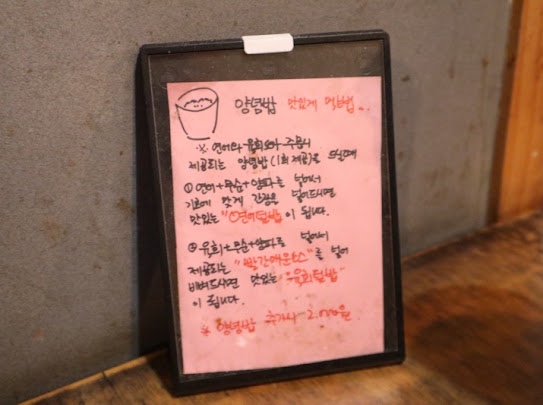 양념밥 맛있게 먹는법..
※ 연어와 육회 주문시
제공되는 양념밥(1회 제공)을 드실때
① 연어+무순+양파를 넣어서
기호에 맞게 간장을 넣어드시면
맛있는 "연어덮밥"이 됩니다.
② 육회+무순+양파를 넣어서
제공되는 "빨간매운소스"를 넣어
비벼드시면 맛있는 "육회덮밥"
이 됩니다.
※ 양념밥 추가시 2.000원.